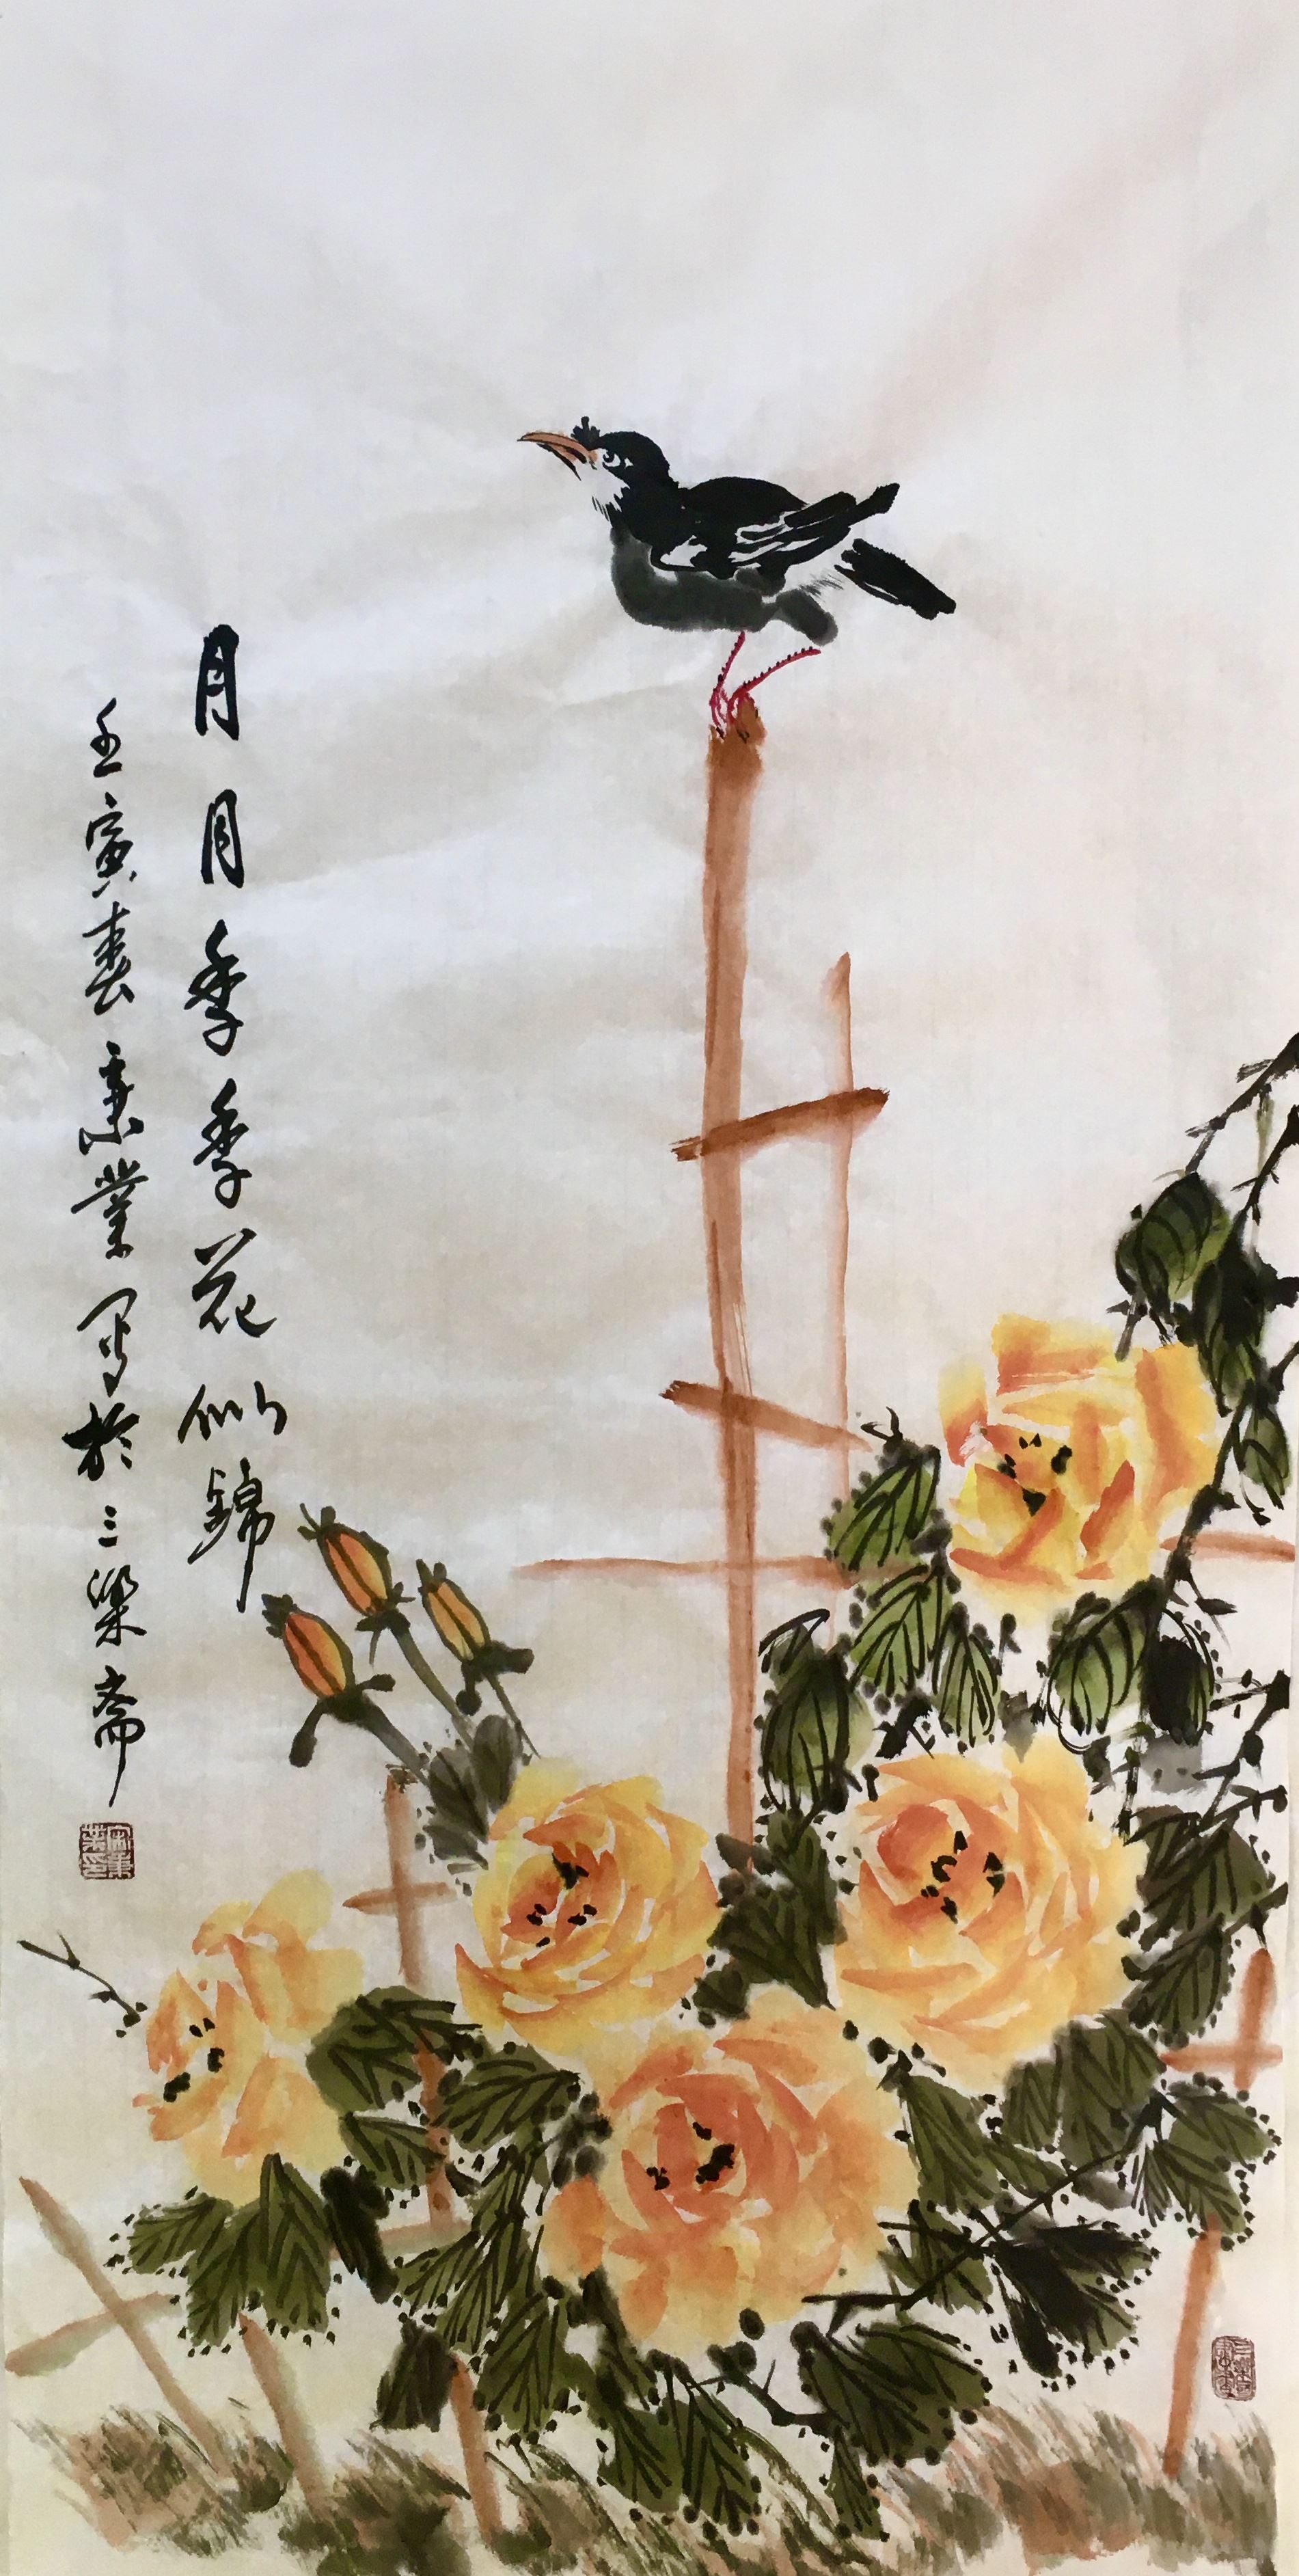 月月季季花似錦
壬寅春秉業写於三樂斋